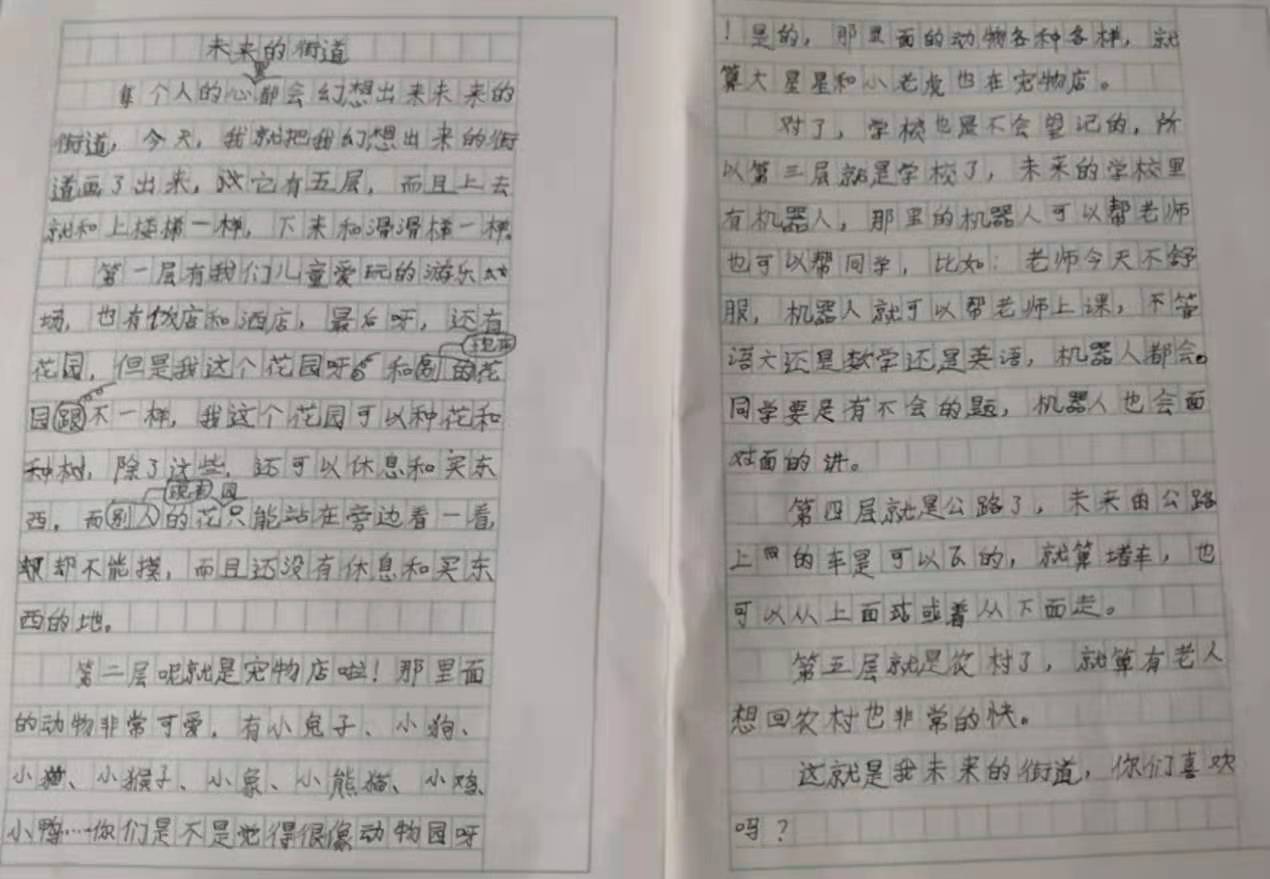 未来的街道
每个人的心里都会幻想出来未来的
街道，今天，我就把我幻想出来的街
道画了出来，它有五层，而且上去
就和上楼梯一样，下来和滑滑梯一样。
第一层有我们儿童爱玩的游乐
场，也有饭店和酒店，最后呀，还有
花园，但是我这个花园呀和现在的花
园不一样，我这个花园可以种花和
种树，除了这些，还可以休息和买东
西，而现在的花园只能站在旁边看一看，
却不能摸，而且还没有休息和买东
西的地。
第二层呢就是宠物店啦！那里面
的动物非常可爱，有小兔子、小狗、
小猫、小猴子、小象、小熊猫、小鸡、
小鸭……你们是不是觉得很像动物园呀
！是的，那里面的动物各种各样，就
算大星星和小老虎也在宠物店。
对了，学校也是不会望记的，所
以第三层就是学校了，未来的学校里
有机器人，那里的机器人可以帮老师
也可以帮同学，比如：老师今天不舒
服，机器人就可以帮老师上课，不管
语文还是数学还是英语，机器人都会。
同学要是有不会的题，机器人也会面
对面的讲。
第四层就是公路了，未来由公路
上的车是可以飞的，就算堵车，也
可以从上面或着从下面走。
第五层就是农村了，就算有老人
想回农村也非常的快。
这就是我未来的街道，你们喜欢
吗？